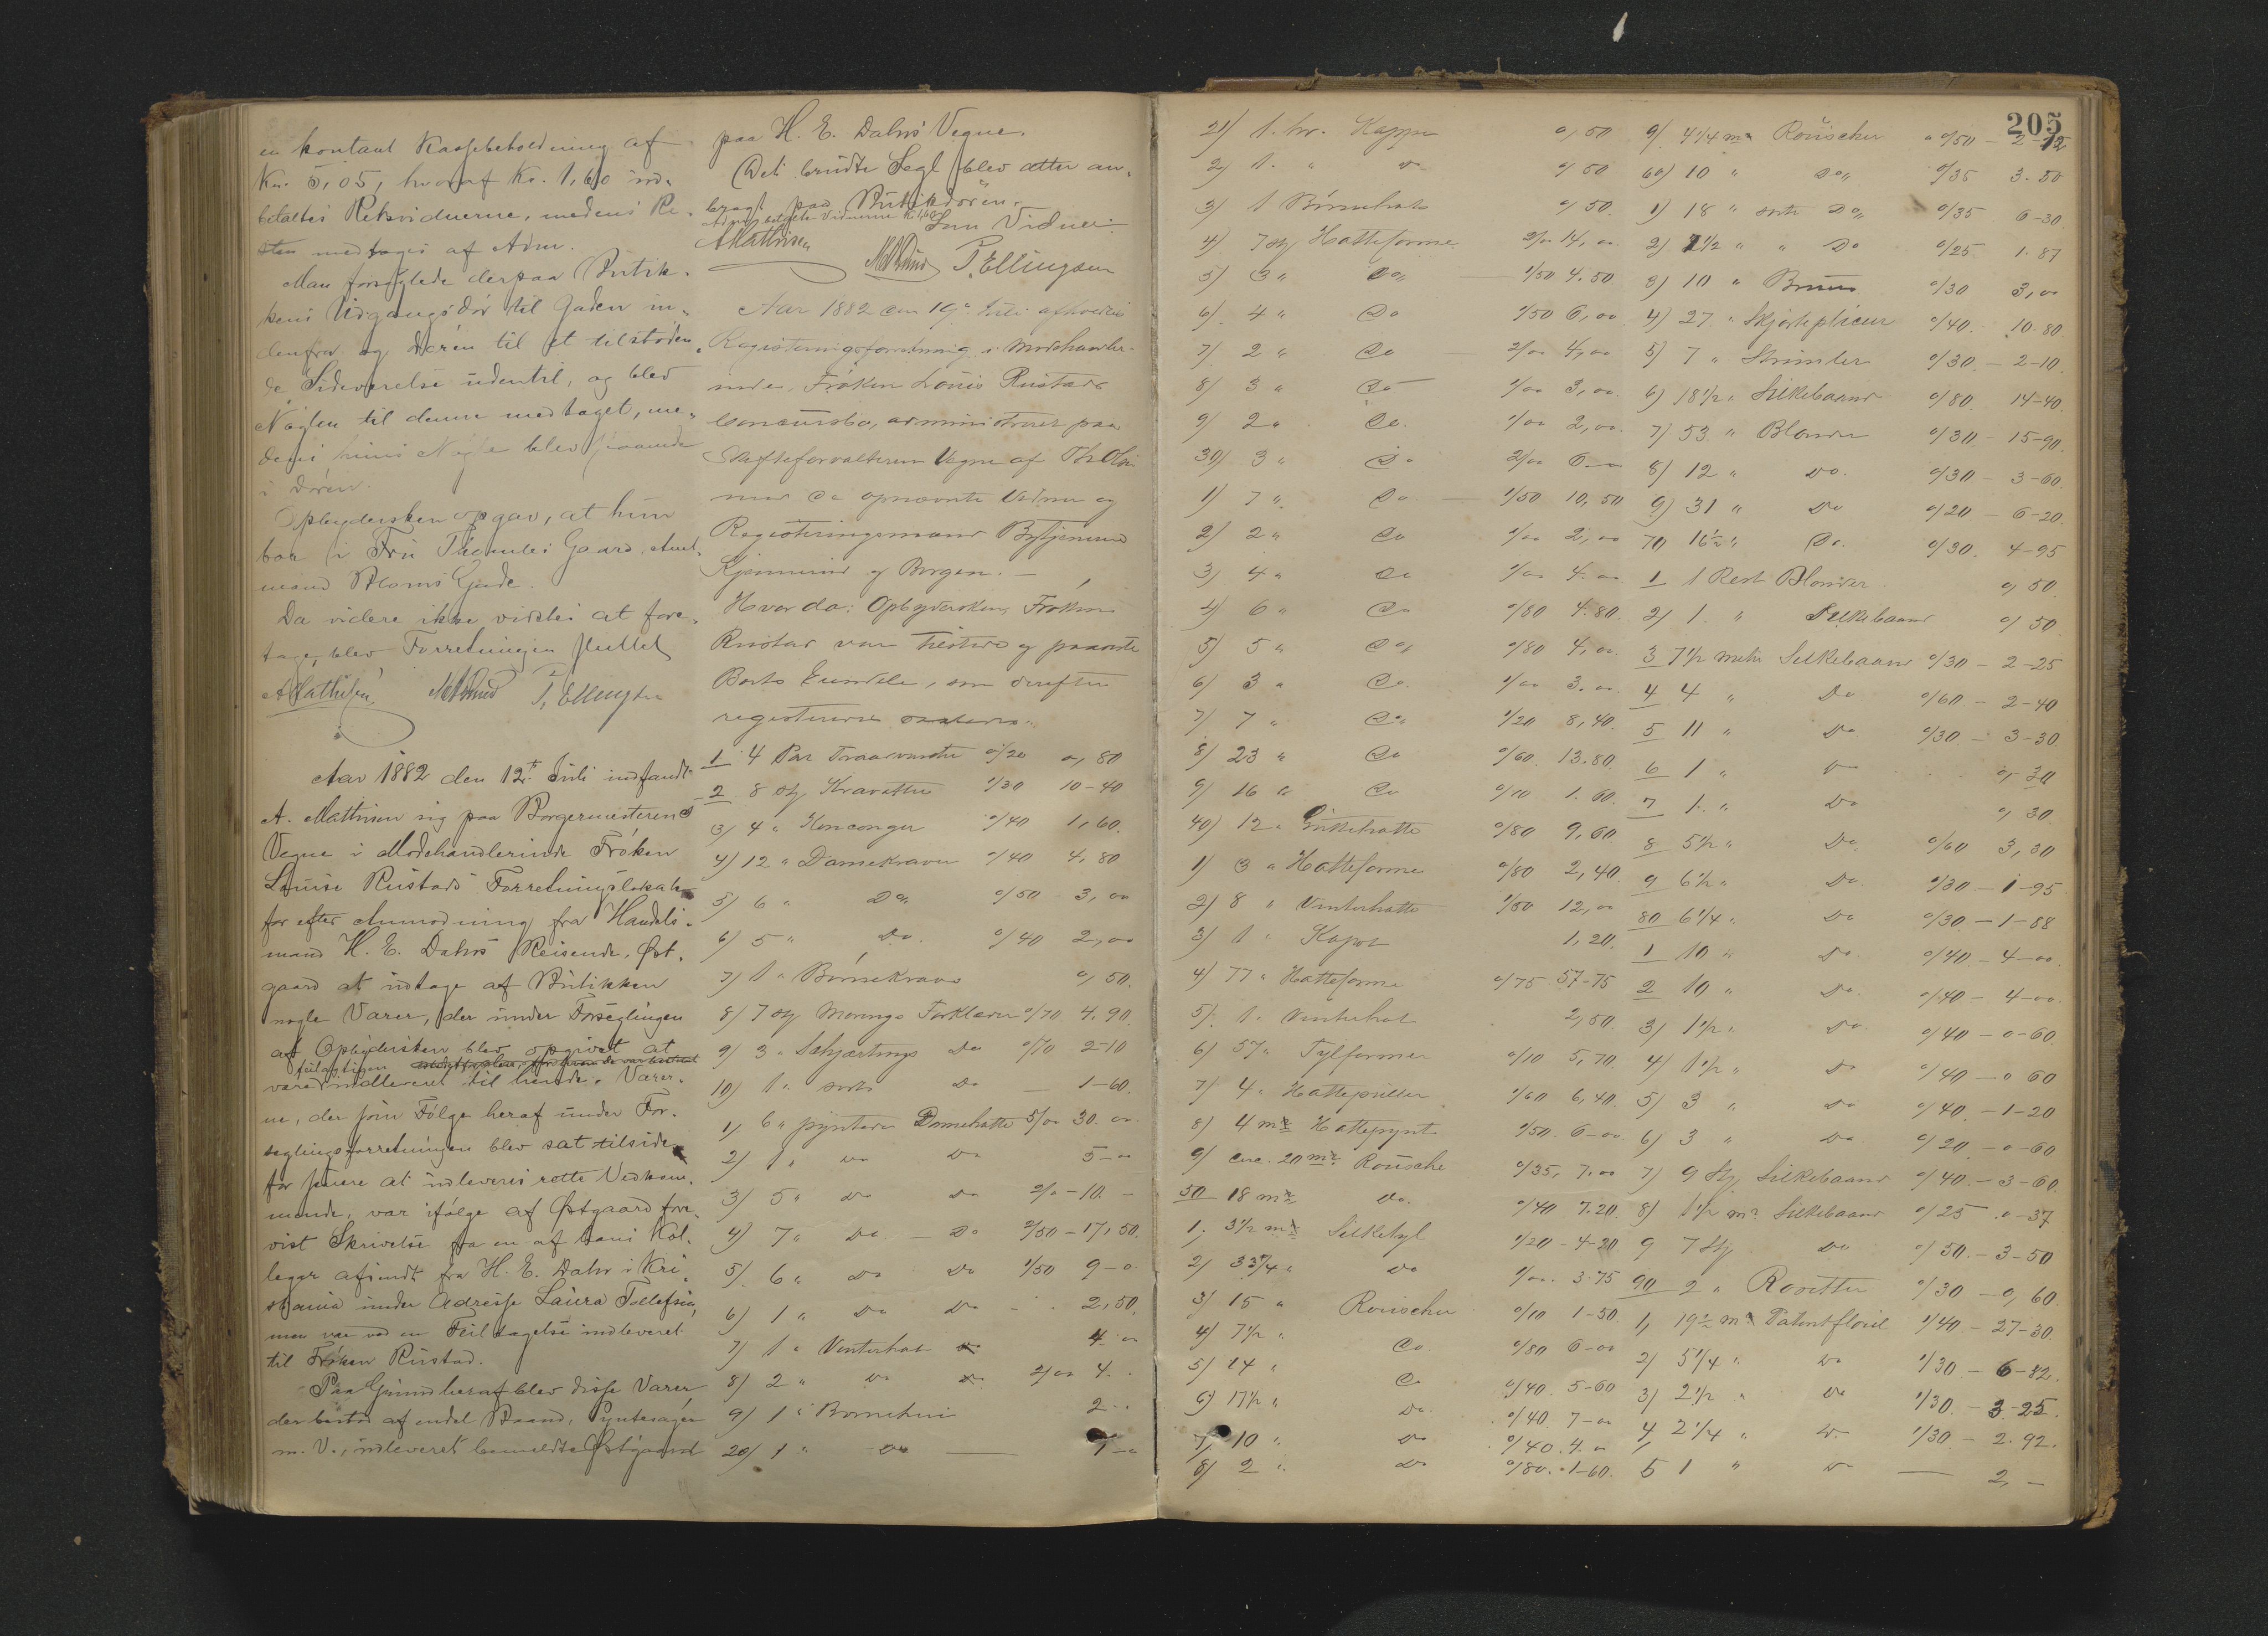 en kontant Kassebeholdning af
Kr. 5,05, hvoraf Kr. 1,60 ud-
betaltes Retsvidnerne, medens Re-
sten medtoges af Adm.
Man forseglede derpaa Butik-
kens Udgangsdør til Gaden in-
denfra og Døren til et tilstøden-
de Sideværelse udentil, og blev
Nøglen til denne medtaget, me-
dens hins Nøgle blev
i Døren.
Opbydersken opgav, at hun
bor i Fru Gaard, Amt-
mand Bloms Gade.
Da videre ikke vidstes at fore-
tage, blev Forretningen sluttet
A Mathisen P. Ellingsen
Aar 1882 den 12te Juli indfandt
A. Mathisen sig paa Borgermesterens
Vegne i Modehandlerinde Frøken
Louise Rustads Forretningslokale
for efter Anmodning fra Handels-
mand H. E. Dahrs Reisende, Øst-
gaard at udtage af Butikken
nogle Varer, der under Forseglingen
af Opbydersken blev opgivet at
være feilagtigen indleveret til hende. Varer-
ne, der som Følge heraf under For-
seglingsforretningen blev sat tilside
for senere at udleveres rette Vedkom-
mende, var ifølge af Østgaard fore-
vist Skrivelse fra en af hans Kol-
leger afsendt fra H. E. Dahr i Kri-
stiania under Adresse Laura Tollefsen,
men var ved en Feiltagelse indleveret
til Frøken Rustad.
Paa Grund heraf blev disse Varer,
der bestod af endel Baand, Pyntesager
m. V., udleveret bemeldte Østgaard
paa H. E. Dahrs Vegne.
Det brudte Segl blev atter an-
bragt paa Butikdøren.
Adm. betalte Vidnerne Kr. 1,60
Som Vidner:
A Mathisen P. Ellingsen
Aar 1882 den 19de Juli afholdtes
Registreringsforretning i Modehandler-
inde Frøken Louis Rustads
Concursbo, administreret paa
Skifteforvalterens Vegne af Th Olsen
med de opnævnte Vidner og
Registreringsmænd Bytjenerne
og Borgen.
Hvorda: Opbydersken, Frøken
Rustad var tilstede og paaviste
Boets Eiendele, som derefter
registreredes
1 4 Par Traavanter 0/20 0,80
2 8 st Kravatter 1/30 10-40
3) 4 " 0/40 1,60.
4) 12 " Damekraver 0/40 4,80
5) 6 " Do. 0/50 3,00
6) 5 " Do. 0/40 2,00
7) 1 " Børnekrave 0,50.
8) 7 st Morengs Forklæder 0/70 4.90.
9) 3 " Schjærtings Do 0/70 2-10
10) 1 " sort Do 1-60.
1) 6 " pyntede Damehatte 5/00 30.00
2) 1 " Do Do 5-00
3) 5 " Do Do 2/00-10.-
4) 7 " Do - Do 2/50-17,50.
5) 6 " Do Do 1/50 9-0
6) 1 " Do Do - 2,50.
7) 1 " Vinterhat 4.00
8) 2 " Do 2/00 4.
9) 1 " Børnehue 2--
20) 1 " Do 1-0
205
21) 1 hv. Kappe 0,50
2) 1. " Do 0/50
3) 1 Børnehat 0/50.
4) 7 st Hatteforme 2/00 14,00
5) 3 " Do 1/50 4.50
6) 4 " Do 1/50 6,00
7) 2 " Do 2/00 4,00
8) 3 " Do 1/00 3,00.
9) 2 " Do. 1/00 2,00.
30) 3 " Do 2/00 6-00
1) 7 " Do 1/50 10,50
2) 2 " Do 1/00 2,00
3) 4 " Do 1/00 4.00
4) 6 " Do 0/80 4.80.
5) 5 " Do 0/80 4,00.
6) 3 " Do. 1/00 3.00.
7) 7 " Do 1/20 8,40.
8) 23 " Do 0/60. 13.80.
9) 16 " Do 0/10 1.60.
40) 12 " Enkehatte 0/80 9,60.
1) 3 " Hatteforme 0/80 2,40
2) 8 " Vinterhatte 1/50 12,00
3) 1 " Kapot 1,20.
4) 77 " Hatteforme 0/75 57-75
5) 1. Vinterhat 2,50
6) 57 " Tylformer 0/10 5,70
7) 4 " Hattepuller 1/60 6,40.
8) 4 mr Hattepynt 1/50. 6-00
9) circ. 20 mr. Rousche 0/35, 7.00
50 18 mr Do. 0/40 7.20.
1. 3 1/2 mr Silketyl 1/20-4-20
2) 3 3/4 " Do 1/00. 3.75
3) 15 " Rouscher 0/10 1-50.
4) 7 1/2 " Do. 0/80 6-00
5) 14 " Do 0/40. 5-60
6) 17 1/2 " Do. 0/40 7-00
7) 10 " Do 0/40.4.00
8) 2 " Do 0/80.1-60.
9) 4 1/4 mr Rouscher 0/50-2-12
60) 10 " Do 0/35 3.50
1) 18 " sorte Do 0/35 6-30
2) 7 1/2 " " Do 0/25 1.87
3) 10 " Bruus 0/30 3,00
4) 27 " Skjorteplicer 0/40. 10.80
5) 7 " Strimler 0/30.-2-10.
6) 18 1/2 " Silkebaand 0/80 14-40
7) 53 " Blonder 0/30-15-90.
8) 12 " Do. 0/30-3-60.
9) 31 " Do 0/20-6-20.
70 16 1/2 " Do. 0/30. 4-95
1 1 Rest Blonder 0,50.
2) 1 " Silkebaand 0/50
3 7 1/2 meter Silkebaand 0/30-2-25
4 4 " Do 0/60-2-40
5 11 " Do 0/30-3-30.
6 1 " Do 0,30
7 1 " Do 0,30.
8 5 1/2 " Do. 0/60 3,30
9 6 1/2 " Do 0/30-1-95.
80 6 1/4 " Do 0/30-1-88
1 10 " Do 0/40-4-00.
2 10 " Do. 0/40-4-00.
3) 1 1/2 " Do. 0/40-0-60.
4) 1 1/2 " Do 0/40-0 60
5) 3 " Do 0/40.-1-20
6) 3 " Do 0/20-0-60
7) 9 St Silkebaand 0/40.-3-60.
8) 1 1/2 mr. Silkebaand 0/25 0-37
9 7 St Do 0/50.-3-50
90 2 " Rosetter 0/30-0,60.
1, 19 1/2 mr Patentfløiel 1/40-27-30.
2) 5 1/4 " Do 1/30.-6-82.
3) 2 1/2 " Do 1/30.-3-25.
4 2 1/4 " Do 1/30-2.92.
5 1 " Do 2,-